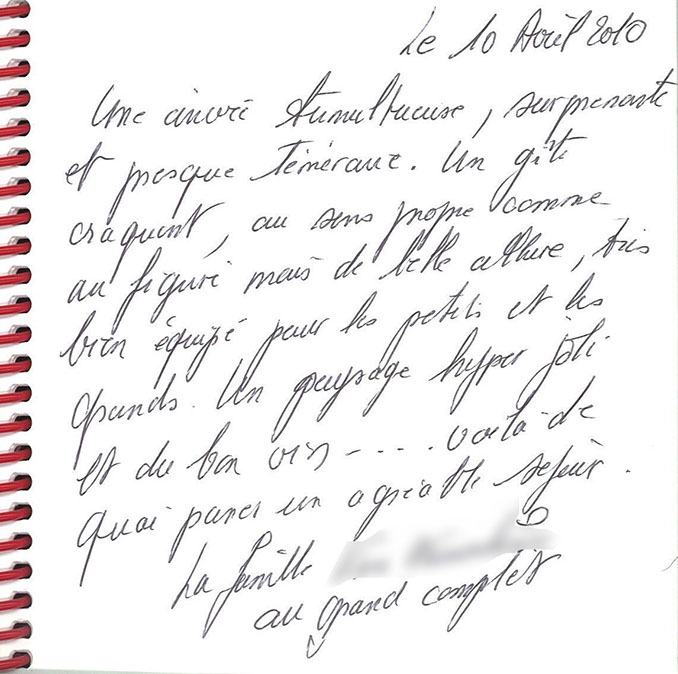 Le 10 Avril 2010
Une tumultueuse, surprenante
et presque téméraire. Un gîte
craquant, au sens propre comme
au figuré mais de belle allure, très
bien équipé pour les petits et les
grands. Un paysage hyper joli
et du bon vin - - . . . voilà de
quoi passer un agréable séjour.
La famille
au grand complet